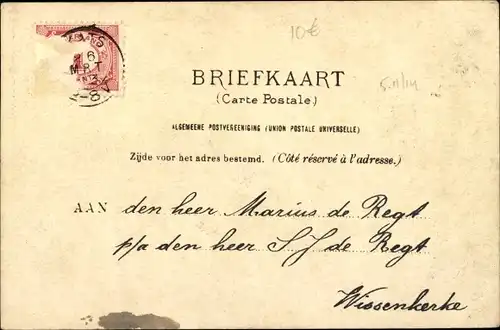 10€
BRIEFKAART
(Carte Postale.)
5-11/14
ALGEMEENE POSTVEREENIGING (UNION POSTALE UNIVERSELLE)
Zijde voor het adres bestemd. (Côté réservé à l'adresse.)
AAN den heer Marius de Regt
p/a den heer S J de Regt
Wissenkerke
6
MRT